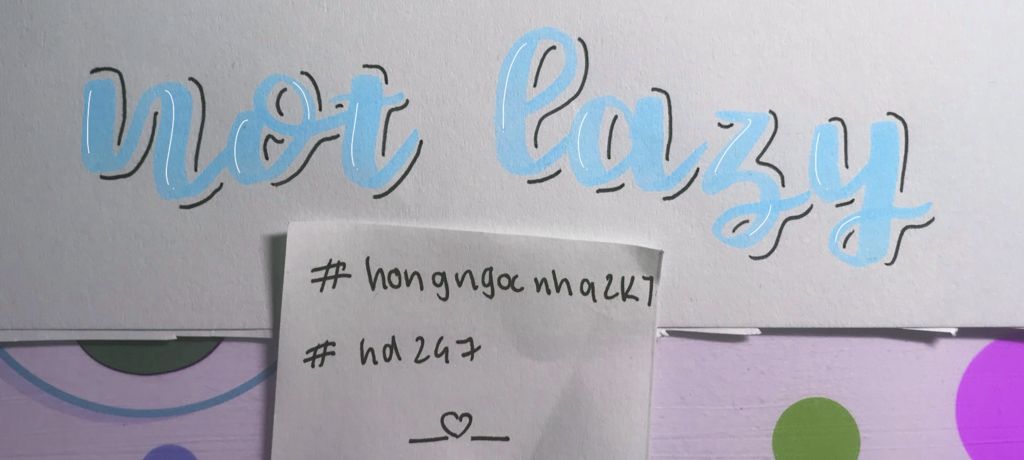 not lazy
# hongngocnha2k7
# hd247